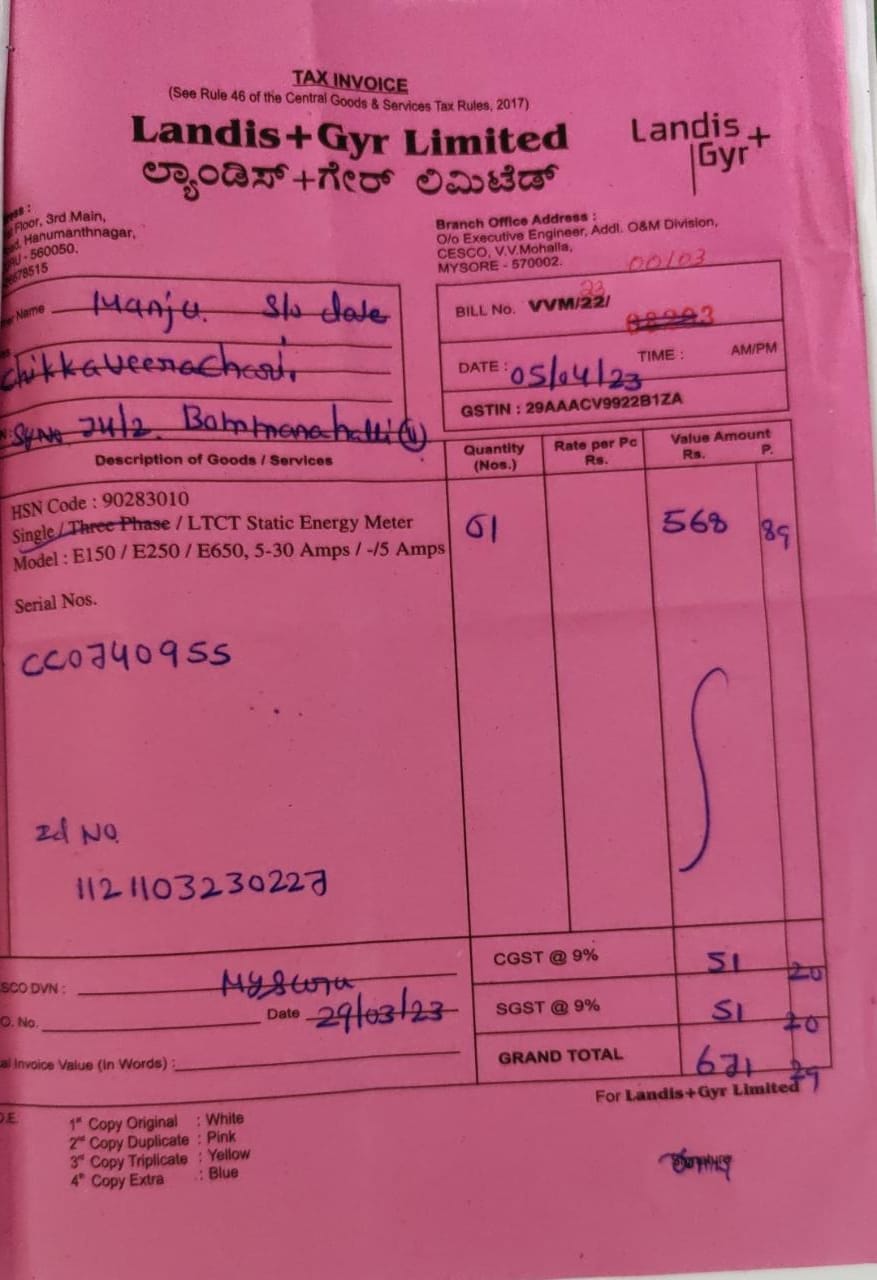 TAX INVOICE
(See Rule 46 of the Central Goods & Services Tax Rules, 2017)
Landis+Gyr Limited
ಲ್ಯಾಂಡಿಸ್+ಗೇರ್ ಲಿಮಿಟೆಡ್
Landis
Gyr+
ress :
Floor, 3rd Main,
Hanumanthnagar,
- 560050.
78515
Branch Office Address :
O/o Executive Engineer, Addl. O&M Division,
CESCO, V.V.Mohalla,
MYSORE - 570002.
00103
Name Manju. S/o date
chikkaveerachari.
Sy No 74/2. Bommanahalli (V)
BILL No. VVM/22/ 23
DATE : 05/04/23 TIME : AM/PM
GSTIN : 29AAACV9922B1ZA
Description of Goods / Services Quantity (Nos.) Rate per Pc Rs. Value Amount Rs. P.
HSN Code : 90283010
Single / Three Phase / LTCT Static Energy Meter 01 568 89
Model : E150 / E250 / E650, 5-30 Amps / -/5 Amps
Serial Nos.
CC0740955
Id No.
1121103230227
CGST @ 9% 51 20
SCO DVN : Mysuru
SGST @ 9% 51 20
O. No. Date 29/03/23
GRAND TOTAL 671 29
al Invoice Value (In Words) :
For Landis+Gyr Limited
1st Copy Original : White
2nd Copy Duplicate : Pink
3rd Copy Triplicate : Yellow
4th Copy Extra : Blue